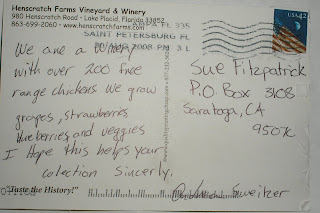 Henscratch Farms Vineyard & Winery
980 Henscratch Road • Lake Placid, Florida 33852
863-699-2060 • www.henscratchfarms.com
TAMPA FL 335
SAINT PETERSBURG FL
2008 PM 3 L
USA 42
We are a winery
with over 200 free
range chickens We grow
grapes, strawberries
blueberries, and veggies
I Hope this helps your
colection Sincerly,
Sweitzer
Sue Fitzpatrick
P.O Box 3108
Saratoga, CA
95070
"Taste the History!"